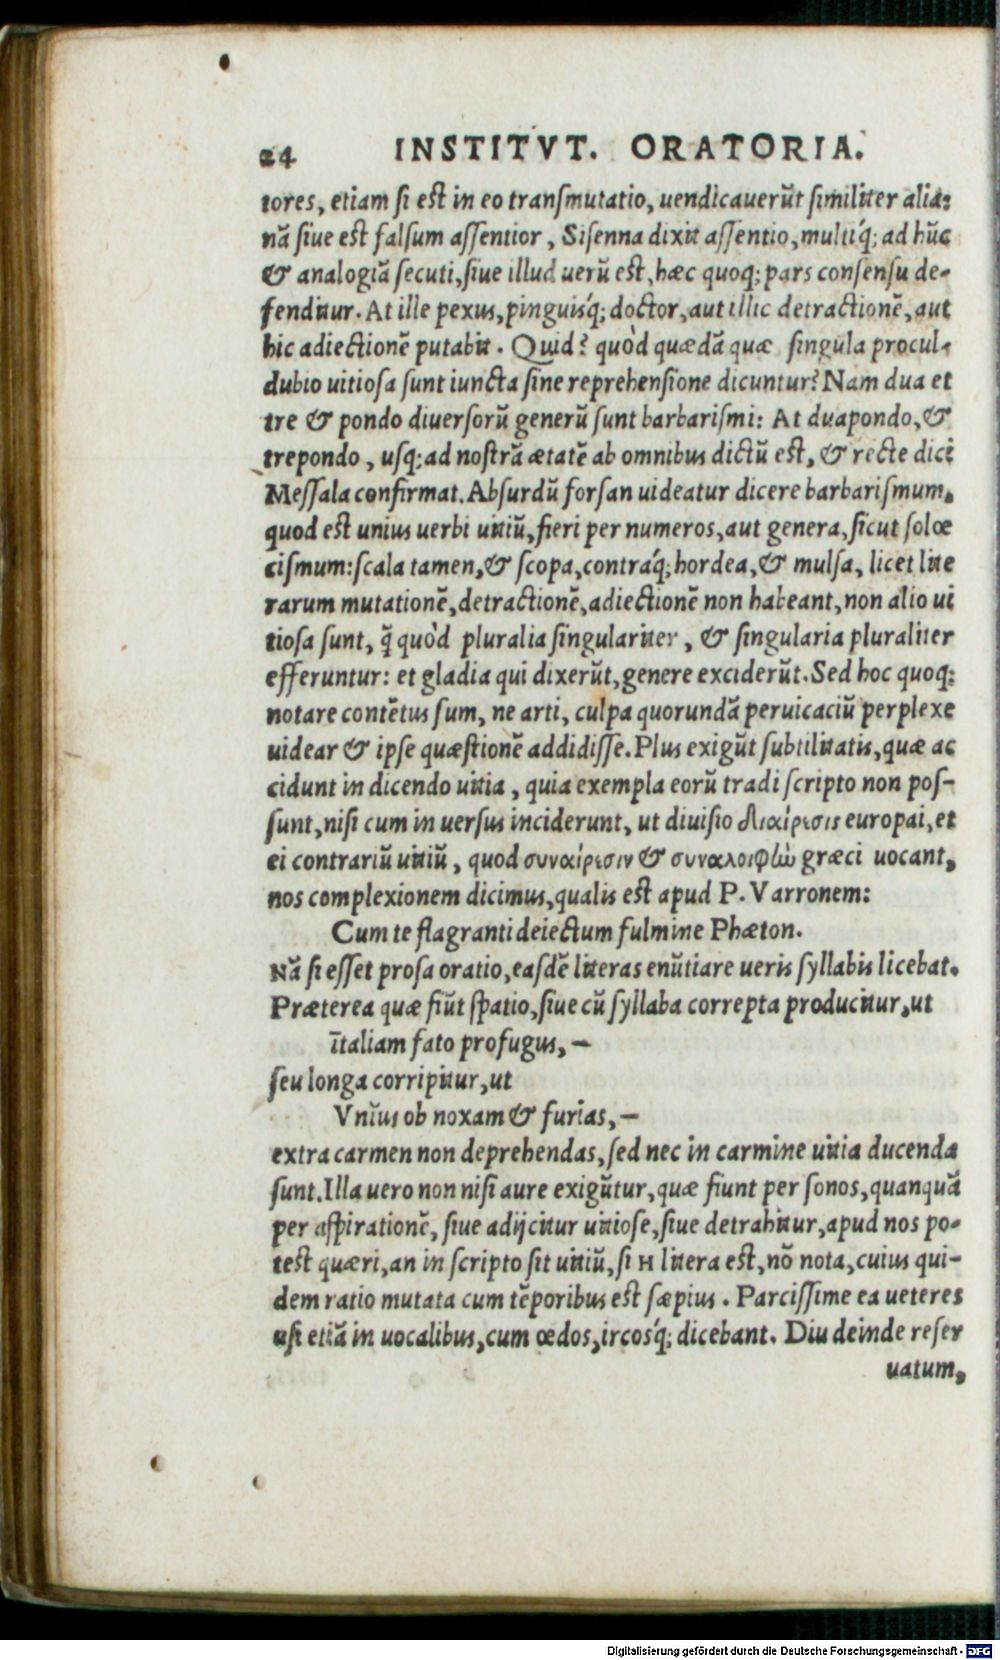 24 INSTITVT. ORATORIA.
tores, etiam ſi est in eo tranſmutatio, uendicauerũt ſimiliter alia:
nã ſiue est falſum aſſentior, Siſenna dixit aſſentio, multiq́; ad hũc
& analogiã ſecuti, ſiue illud uerũ est, hæc quoq; pars conſenſu de-
fenditur. At ille pexus, pinguisq́; doctor, aut illic detractionẽ, aut
hic adiectionẽ putabit. Quid? quòd quædã quæ ſingula procul-
dubio uitioſa ſunt iuncta ſine reprehenſione dicuntur? Nam dua et
tre & pondo diuerſorũ generũ ſunt barbariſmi: At duapondo, &
trepondo, uſq; ad noſtrã ætatẽ ab omnibus dictũ est, & recte dici
Meſſala confirmat. Abſurdũ forſan uideatur dicere barbariſmum,
quod est unius uerbi uitiũ, fieri per numeros, aut genera, ſicut ſolœ
ciſmum: ſcala tamen, & ſcopa, contraq́; hordea, & mulſa, licet lite
rarum mutationẽ, detractionẽ, adiectionẽ non habeant, non alio ui
tioſa ſunt, q̃ quòd pluralia ſingulariter, & ſingularia pluraliter
efferuntur: et gladia qui dixerũt, genere exciderũt. Sed hoc quoq;
notare contẽtus ſum, ne arti, culpa quorundã peruicaciũ perplexe
uidear & ipſe quæſtionẽ addidiſſe. Plus exigũt ſubtilitatis, quæ ac
cidunt in dicendo uitia, quia exempla eorũ tradi ſcripto non poſ-
ſunt, niſi cum in uerſus inciderunt, ut diuiſio διαίρεσις europai, et
ei contrariũ uitiũ, quod συναίρεσιν & συναλοιφὼ græci uocant,
nos complexionem dicimus, qualis est apud P. Varronem:
Cum te flagranti deiectum fulmine Phæton.
Nã ſi eſſet proſa oratio, eaſdẽ literas enũtiare ueris ſyllabis licebat.
Præterea quæ fiũt ſpatio, ſiue cũ ſyllaba correpta producitur, ut
ītaliam fato profugus, —
ſeu longa corripitur, ut
Vnĭus ob noxam & furias, —
extra carmen non deprehendas, ſed nec in carmine uitia ducenda
ſunt. Illa uero non niſi aure exigũtur, quæ fiunt per ſonos, quanquã
per aſpirationẽ, ſiue adijcitur uitioſe, ſiue detrahitur, apud nos po-
test quæri, an in ſcripto ſit uitiũ, ſi H litera est, nõ nota, cuius qui-
dem ratio mutata cum tẽporibus est ſæpius. Parciſſime ea ueteres
uſi etiã in uocalibus, cum œdos, ircosq́; dicebant. Diu deinde reſer
uatum,
Digitalisierung gefördert durch die Deutsche Forschungsgemeinschaft - DFG